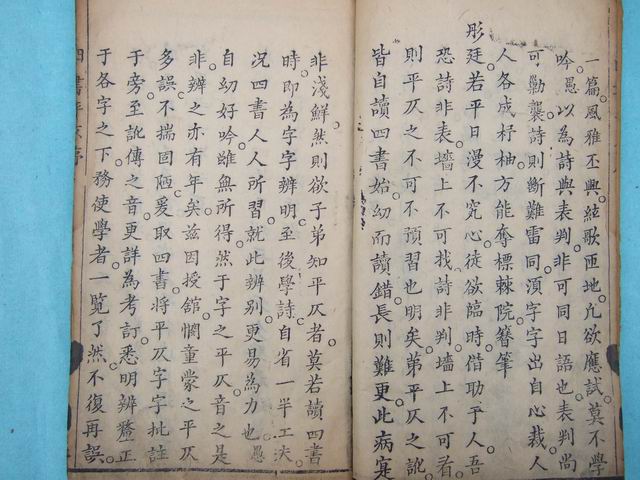 一篇風雅丕興絃歌匝地凢欲應試莫不學
吟愚以為詩與表判非可同日語也表判尚
可勦襲詩則斷難雷同湏字字出自心裁人
人各成杼柚方能奪標棘院簪筆
彤廷若平日漫不究心徒欲臨時借助乎人吾
恐詩非表墻上不可找詩非判墻上不可看
則平仄之不可不預習也明矣第平仄之訛
皆自讀四書始幼而讀錯長則難更此病寔
非淺鮮然則欲子弟知平仄者莫若讀四書
時即為字字辨明至後學詩自省一半工夫
况四書人人所習就此辨别更易為力也愚
自幼好吟雖無所得然于字之平仄音之是
非辨之亦有年矣兹因授舘憫童蒙之平仄
多誤不揣固陋爰取四書將平仄字字批註
于旁至訛傳之音更詳為考訂悉明辨釐正
于各字之下務使學者一覧了然不復再誤
四書